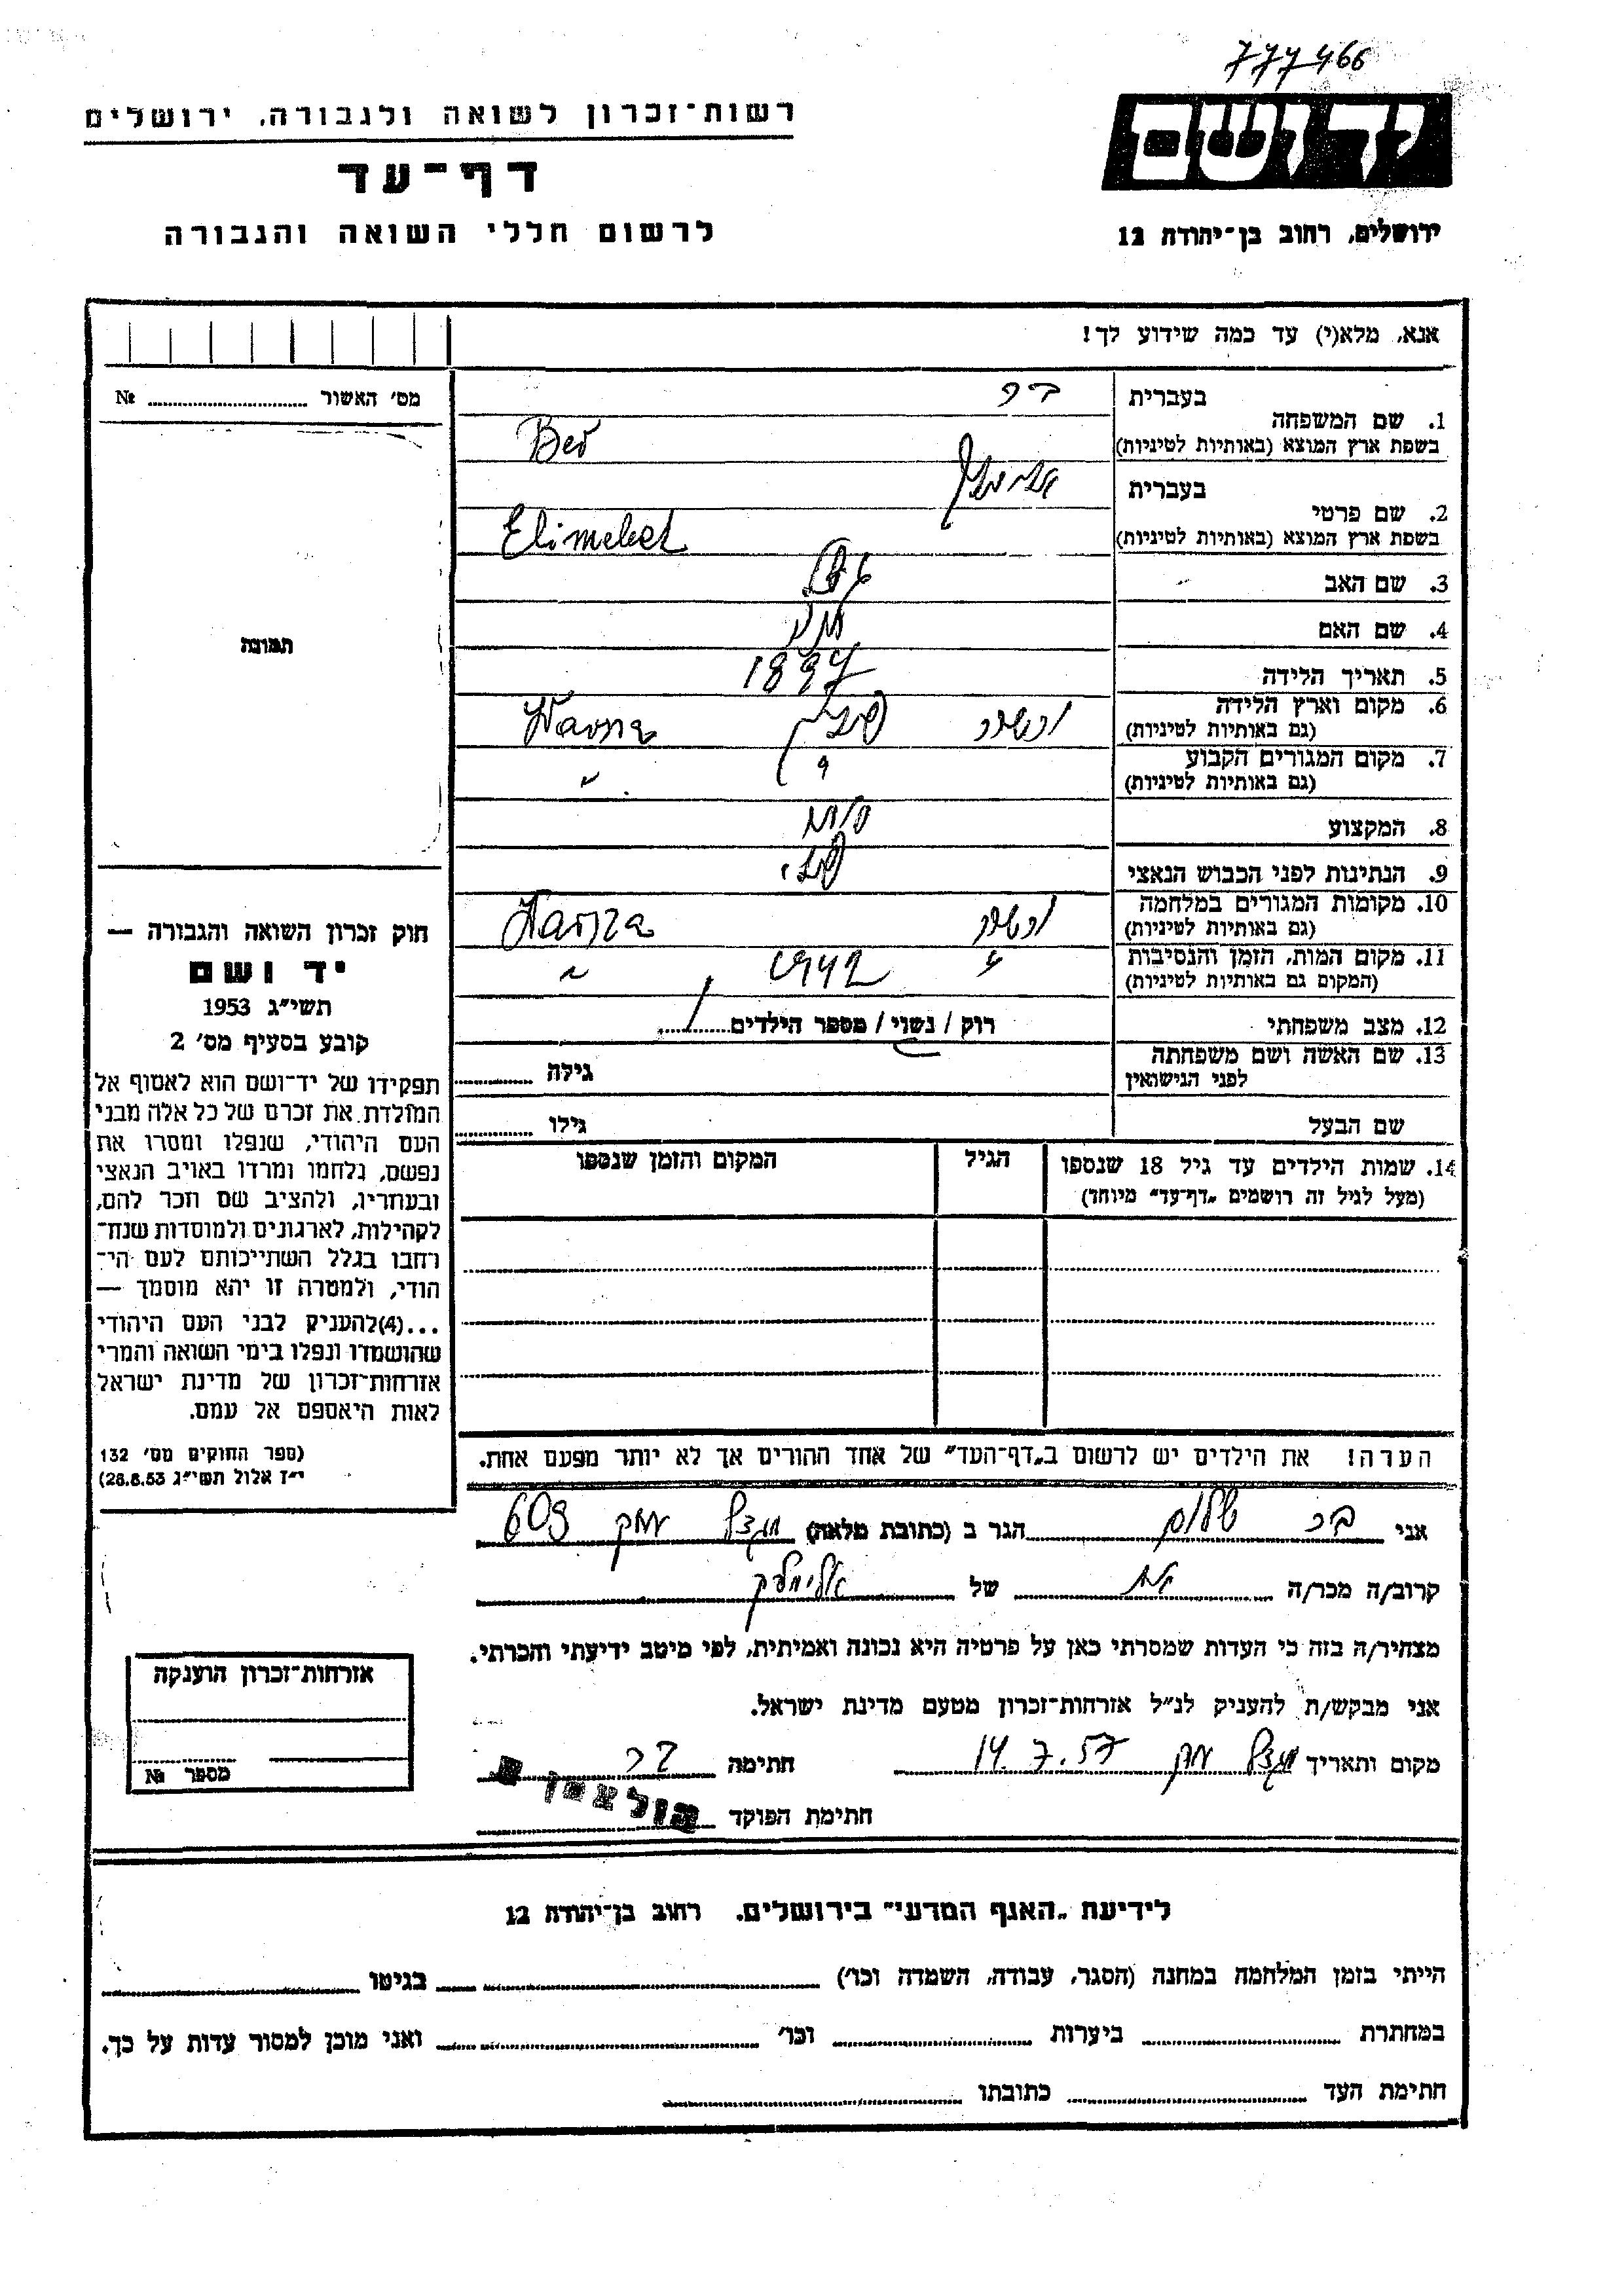 777466
רשות־זכרון לשואה ולגבורה, ירושלים
יד ושם
דף־עד
לרשום חללי השואה והגבורה
ירושלים, רחוב בן־יהודה 12
אנא, מלא(י) עד כמה שידוע לך!
מס׳ האשור № 
תמונה
חוק זכרון השואה והגבורה —
יד ושם
תשי״ג 1953
קובע בסעיף מס׳ 2
תפקידו של יד־ושם הוא לאסוף אל
המולדת את זכרם של כל אלה מבני
העם היהודי, שנפלו ומסרו את
נפשם, נלחמו ומרדו באויב הנאצי
ובעוזריו, ולהציב שם וזכר להם,
לקהילות, לארגונים ולמוסדות שנח־
רחבו בגלל השתייכותם לעם הי־
הודי, ולמטרה זו יהא מוסמך —
...(4)להעניק לבני העם היהודי
שהושמדו ונפלו בימי השואה והמרי
אזרחות־זכרון של מדינת ישראל
לאות היאספם אל עמם.
(ספר החוקים מס׳ 132
י״ז אלול תשי״ג 28.8.53)
בעברית בר
1. שם המשפחה
בשפת ארץ המוצא (באותיות לטיניות) Ber
בעברית אלימלך
2. שם פרטי
בשפת ארץ המוצא (באותיות לטיניות) Elimelech
3. שם האב
4. שם האם
5. תאריך הלידה 1897
6. מקום וארץ הלידה ורשה פולין
(גם באותיות לטיניות)
7. מקום המגורים הקבוע " "
(גם באותיות לטיניות)
8. המקצוע
9. הנתינות לפני הכבוש הנאצי פולני
10. מקומות המגורים במלחמה ורשה
(גם באותיות לטיניות)
11. מקום המות, הזמן והנסיבות " 1942 "
(המקום גם באותיות לטיניות)
12. מצב משפחתי רוק / נשוי / מספר הילדים
13. שם האשה ושם משפחתה גילה
לפני הנישואין
שם הבעל גילו
14. שמות הילדים עד גיל 18 שנספו הגיל המקום והזמן שנספו
(מעל לגיל זה רושמים „דף־עד״ מיוחד)
הערה! את הילדים יש לרשום ב„דף־העד״ של אחד ההורים אך לא יותר מפעם אחת.
אני בר שלום הגר ב (כתובת מלאה) מגדל עמק 603
קרוב/ה מכר/ה אח של אלימלך
מצהיר/ה בזה כי העדות שמסרתי כאן על פרטיה היא נכונה ואמיתית, לפי מיטב ידיעתי והכרתי.
אני מבקש/ת להעניק לנ״ל אזרחות־זכרון מטעם מדינת ישראל.
מקום ותאריך מגדל עמק 14.7.57 חתימה בר
חתימת הפוקד
אזרחות־זכרון הוענקה
מספר №
לידיעת „האגף המדעי״ בירושלים, רחוב בן־יהודה 12
הייתי בזמן המלחמה במחנה (הסגר, עבודה, השמדה וכו׳) בגיטו
במחתרת ביערות וכו׳ ואני מוכן למסור עדות על כך.
חתימת העד כתובתו